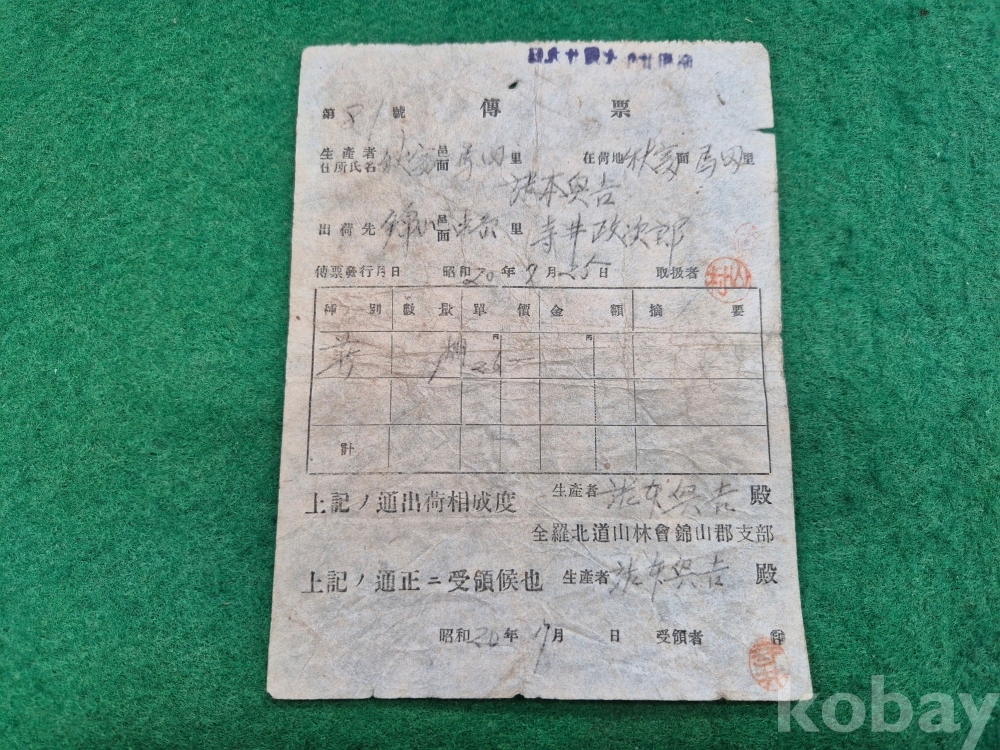 第 81 號 傳票
生產者住所氏名 秋富 邑面 馬田 里 在荷地 秋富 面 馬田 里
本興吉
出荷先 錦山 邑面 里 寺井政次郎
傳票發行月日 昭和 20 年 7 月 25 日 取扱者
種別 數量 單價 金額 摘要
円 円
薪 26
計
上記ノ通出荷相成度 生產者 本興吉 殿
全羅北道山林會錦山郡支部
上記ノ通正ニ受領候也 生產者 本興吉 殿
昭和 20 年 7 月 日 受領者 ㊞
kobay